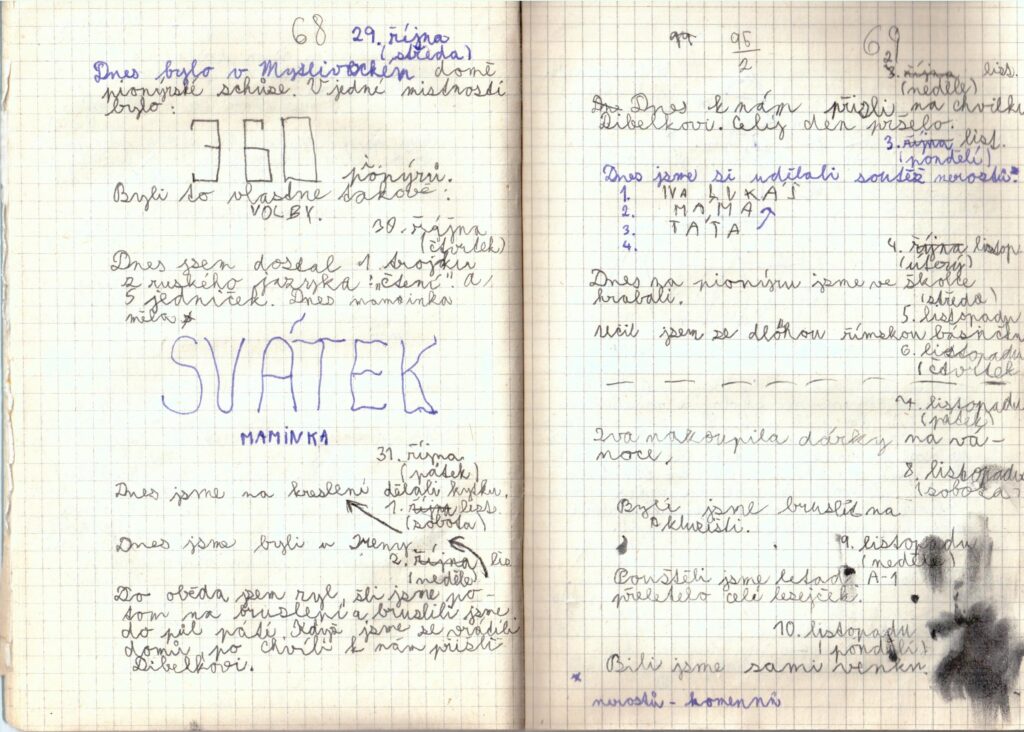 68 29. října
(středa)
Dnes bylo v Mysliveckém domě
pionýrské schůse. V jedné mistností
bylo:
360
pipýrů.
Byli to vlastne takové:
VOLBY.
30. října
(čtvrtek)
Dnes jsem dostal 1 trojku
z ruského jazyka "čtení". A,
5 jedniček. Dnes mamínka
měla
SVÁTEK
MAMINKA
31. října
(pátek)
Dnes jsme na kreslení dělali kytku.
1. října list.
(sobota)
Dnes jsme byli u Ireny.
2. října lis
(neděle)
Do oběda jsem ryl, šli jsme po-
tom na bruslení, a bruslili jsme
do půl páté. Když jsme se vrátili
domů po chvíli k nám přišli
Dibelkovi.
95
2
69
2. října list.
(neděle)
Dne Dnes k nám přisli na chvilku
Dibelkovi. Celý den pršelo.
3. října list.
(pondělí)
Dnes jsme si udělali soutěž nerostů.*
1. IVA LUKÁŠ
2. MAMA
3. TÁTA
4.
4. října listop
(úterý)
Dnes na pionýru jsme ve školce
hrabali.
(středa)
5. listopadu
Učil jsem se dlóhou římskou básničku
6. listopadu
(čtvrtek
7. listopadu
(pátek)
Iva nakoupila dárky na vá-
noce.
8. listopadu
(sobota)
Byli jsme bruslit na
kluzisti.
9. listopadu
(neděle)
Pouštěli jsme letadl A-1
přeletělo celé lesejček.
10. listopadu
(pondělí)
Bili jsme sami venku.
* nerostů - kamenů